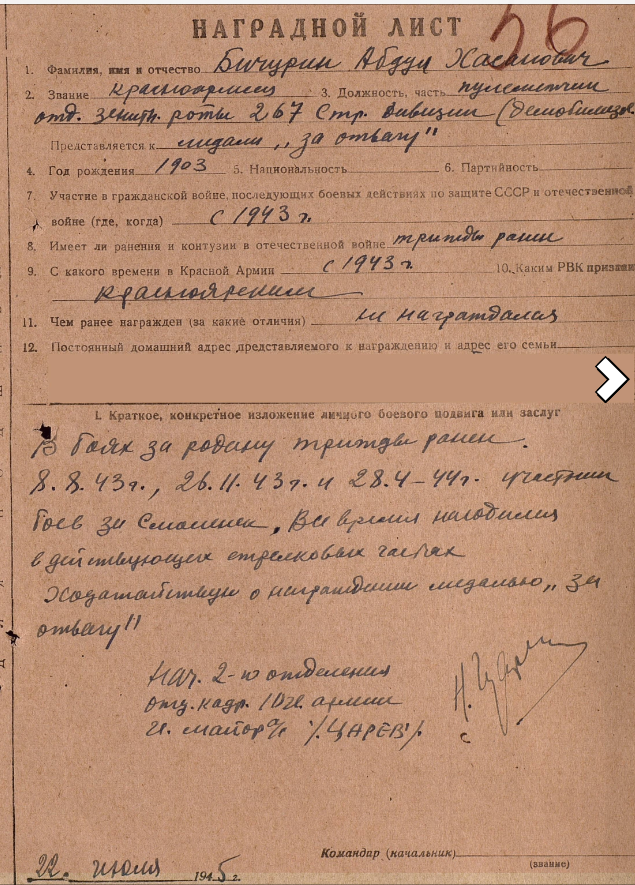 НАГРАДНОЙ ЛИСТ
56
1. Фамилия, имя и отчество Бичурин Абдул Хасанович
2. Звание красноармеец 3. Должность, часть пулеметчик
отд. зенитн. роты 267 Стр. дивизии (демобилизов.
Представляется к медали „за отвагу"
4. Год рождения 1903 5. Национальность 6. Партийность
7. Участие в гражданской войне, последующих боевых действиях по защите СССР и отечественной
войне (где, когда) с 1943 г.
8. Имеет ли ранения и контузии в отечественной войне трижды ранен
9. С какого времени в Красной Армии с 1943 г. 10. Каким РВК призван
Красноярским
11. Чем ранее награжден (за какие отличия) не награждался
12. Постоянный домашний адрес представляемого к награждению и адрес его семьи
I. Краткое, конкретное изложение личного боевого подвига или заслуг
В боях за родину трижды ранен.
8.8.43г., 26.11.43г. и 28.4-44г. участник
боев за Смоленск. Все время находился
в действующих стрелковых частях
Ходатайствую о награждении медалью „за
отвагу"
Нач. 2-го отделения
отд. кадр. армии
майор /ЦАРЕВ/.
Командир (начальник)
(звание)
22. июля 1945 г.